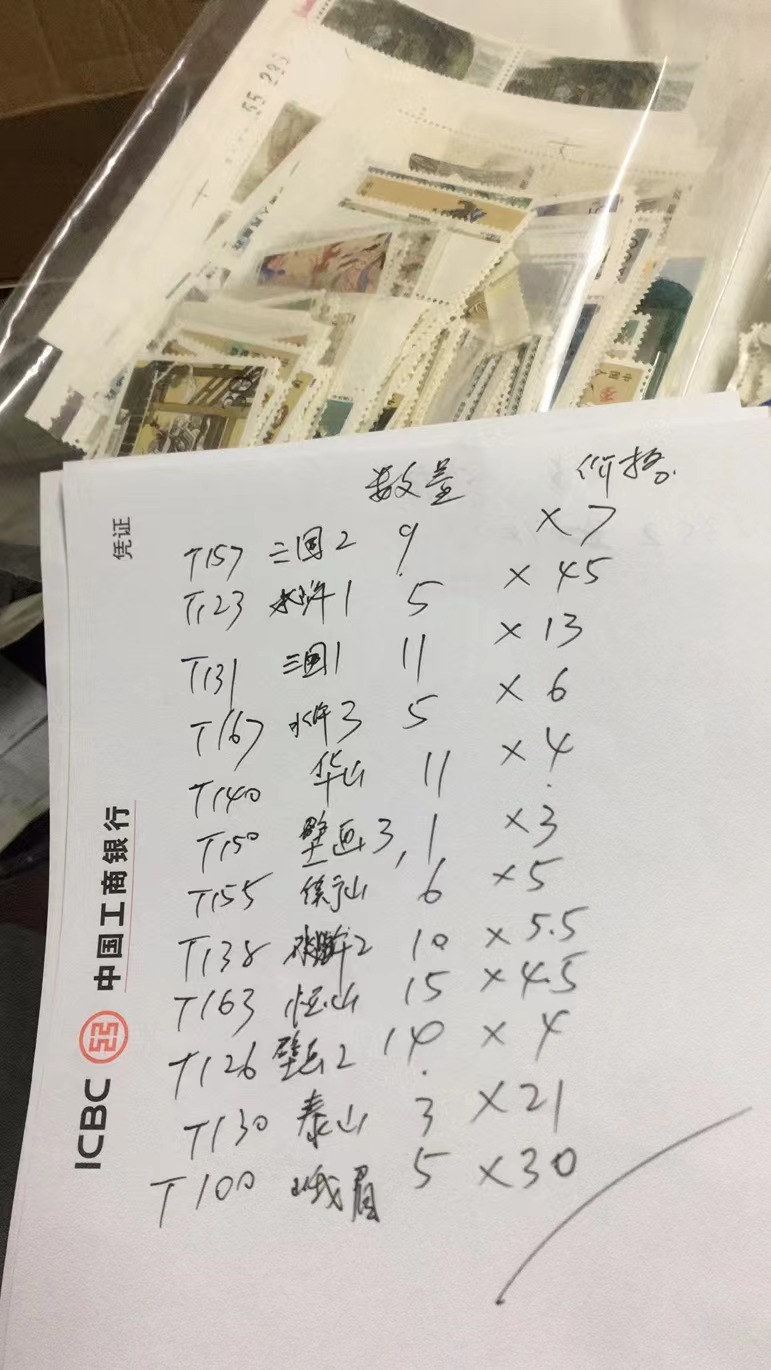 55 293
数量 价格
T157 三国2 9 ×7
T123 水浒1 5 ×45
T131 三国1 11 ×13
T167 水浒3 5 ×6
T140 华山 11 ×4
T150 壁画3, 1 ×3
T155 衡山 6 ×5
T138 水浒2 10 ×5.5
T163 恒山 15 ×4.5
T126 壁画2 14 ×4
T130 泰山 3 ×21
T100 峨眉 5 ×30
凭证
ICBC 中国工商银行